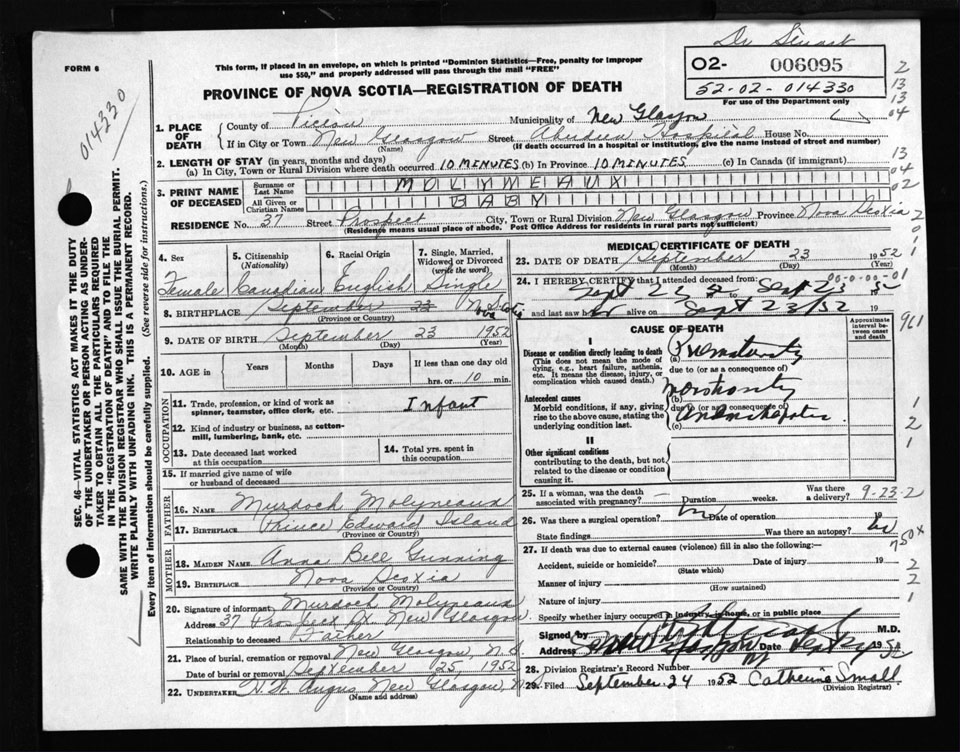 FORM 6
This form, if placed in an envelope, on which is printed "Dominion Statistics—Free, penalty for improper
use $50," and properly addressed will pass through the mail "FREE"
PROVINCE OF NOVA SCOTIA—REGISTRATION OF DEATH
02- 006095
52-02-014330
For use of the Department only
014330
SEC. 46—VITAL STATISTICS ACT MAKES IT THE DUTY
OF THE UNDERTAKER OR PERSON ACTING AS UNDER-
TAKER TO OBTAIN ALL THE PARTICULARS REQUIRED
IN THE "REGISTRATION OF DEATH" AND TO FILE THE
SAME WITH THE DIVISION REGISTRAR WHO SHALL ISSUE THE BURIAL PERMIT.
WRITE PLAINLY WITH UNFADING INK. THIS IS A PERMANENT RECORD.
Every item of information should be carefully supplied. (See reverse side for instructions.)
1. PLACE OF DEATH
County of Pictou Municipality of New Glasgow
If in City or Town New Glasgow Street Aberdeen Hospital House No.
(Name) (If death occurred in a hospital or institution, give the name instead of street and number)
2. LENGTH OF STAY (in years, months and days)
(a) In City, Town or Rural Division where death occurred 10 MINUTES (b) In Province 10 MINUTES (c) In Canada (if immigrant)
3. PRINT NAME OF DECEASED
Surname or Last Name
All Given or Christian Names BABY
RESIDENCE No. 37 Street Prospect City, Town or Rural Division New Glasgow Province Nova Scotia
(Residence means usual place of abode. Post Office Address for residents in rural parts not sufficient)
4. Sex
Female
5. Citizenship
(Nationality)
Canadian
6. Racial Origin
English
7. Single, Married, Widowed or Divorced
(write the word)
Single
8. BIRTHPLACE September 23 Nova Scotia
(Province or Country)
9. DATE OF BIRTH September 23 1952
(Month) (Day) (Year)
10. AGE in Years Months Days If less than one day old
hrs. or 10 min.
OCCUPATION
11. Trade, profession, or kind of work as
spinner, teamster, office clerk, etc. Infant
12. Kind of industry or business, as cotton-
mill, lumbering, bank, etc.
13. Date deceased last worked
at this occupation
14. Total yrs. spent in
this occupation
15. If married give name of wife
or husband of deceased
FATHER
16. NAME Murdoch Molyneaux
17. BIRTHPLACE Prince Edward Island
(Province or Country)
MOTHER
18. MAIDEN NAME Anna Bell Gunning
19. BIRTHPLACE Nova Scotia
(Province or Country)
20. Signature of informant Murdoch Molyneaux
Address 37 Prospect St. New Glasgow
Relationship to deceased Father
21. Place of burial, cremation or removal New Glasgow, N.S.
Date of burial or removal September 25 1952
22. UNDERTAKER Angus New Glasgow, N.S
(Name and address)
MEDICAL CERTIFICATE OF DEATH
23. DATE OF DEATH September 23 1952
(Month) (Day) (Year)
24. I HEREBY CERTIFY that I attended deceased from:
Sept 23 52 to Sept 23 52
and last saw her alive on Sept 23/52 19
CAUSE OF DEATH
Approximate interval between onset and death
I
Disease or condition directly leading to death
(This does not mean the mode of
dying, e.g., heart failure, asthenia,
etc. It means the disease, injury, or
complication which caused death.)
(a) Prematurity
due to (or as a consequence of)
Antecedent causes
Morbid conditions, if any, giving
rise to the above cause, stating the
underlying condition last.
(b)
due to (or as a consequence of)
(c)
II
Other significant conditions
contributing to the death, but not
related to the disease or condition
causing it.
25. If a woman, was the death
associated with pregnancy? — Duration weeks. Was there a delivery? 9-23-2
26. Was there a surgical operation? no Date of operation 19
State findings Was there an autopsy? no
27. If death was due to external causes (violence) fill in also the following:—
Accident, suicide or homicide? Date of injury 19
(State which)
Manner of injury
(How sustained)
Nature of injury
Specify whether injury occurred in industry, in home, or in public place
Signed by M.D.
Address Date 19
28. Division Registrar's Record Number
29. Filed September 24 1952 Catherine Small
(Division Registrar)